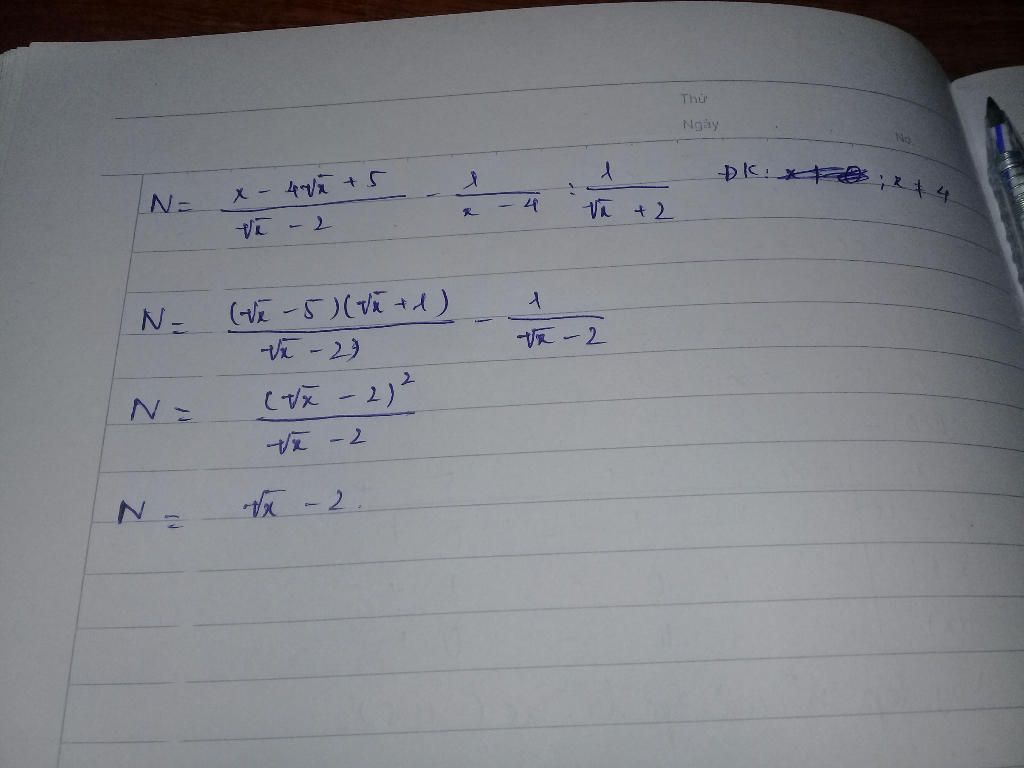 Thứ
Ngày
No.
N = \frac{x - 4\sqrt{x} + 5}{\sqrt{x} - 2} - \frac{1}{x - 4} : \frac{1}{\sqrt{x} + 2} ĐK: ; x ≠ 4
N = \frac{(\sqrt{x} - 5)(\sqrt{x} + 1)}{\sqrt{x} - 2)} - \frac{1}{\sqrt{x} - 2}
N = \frac{(\sqrt{x} - 2)^2}{\sqrt{x} - 2}
N = \sqrt{x} - 2.